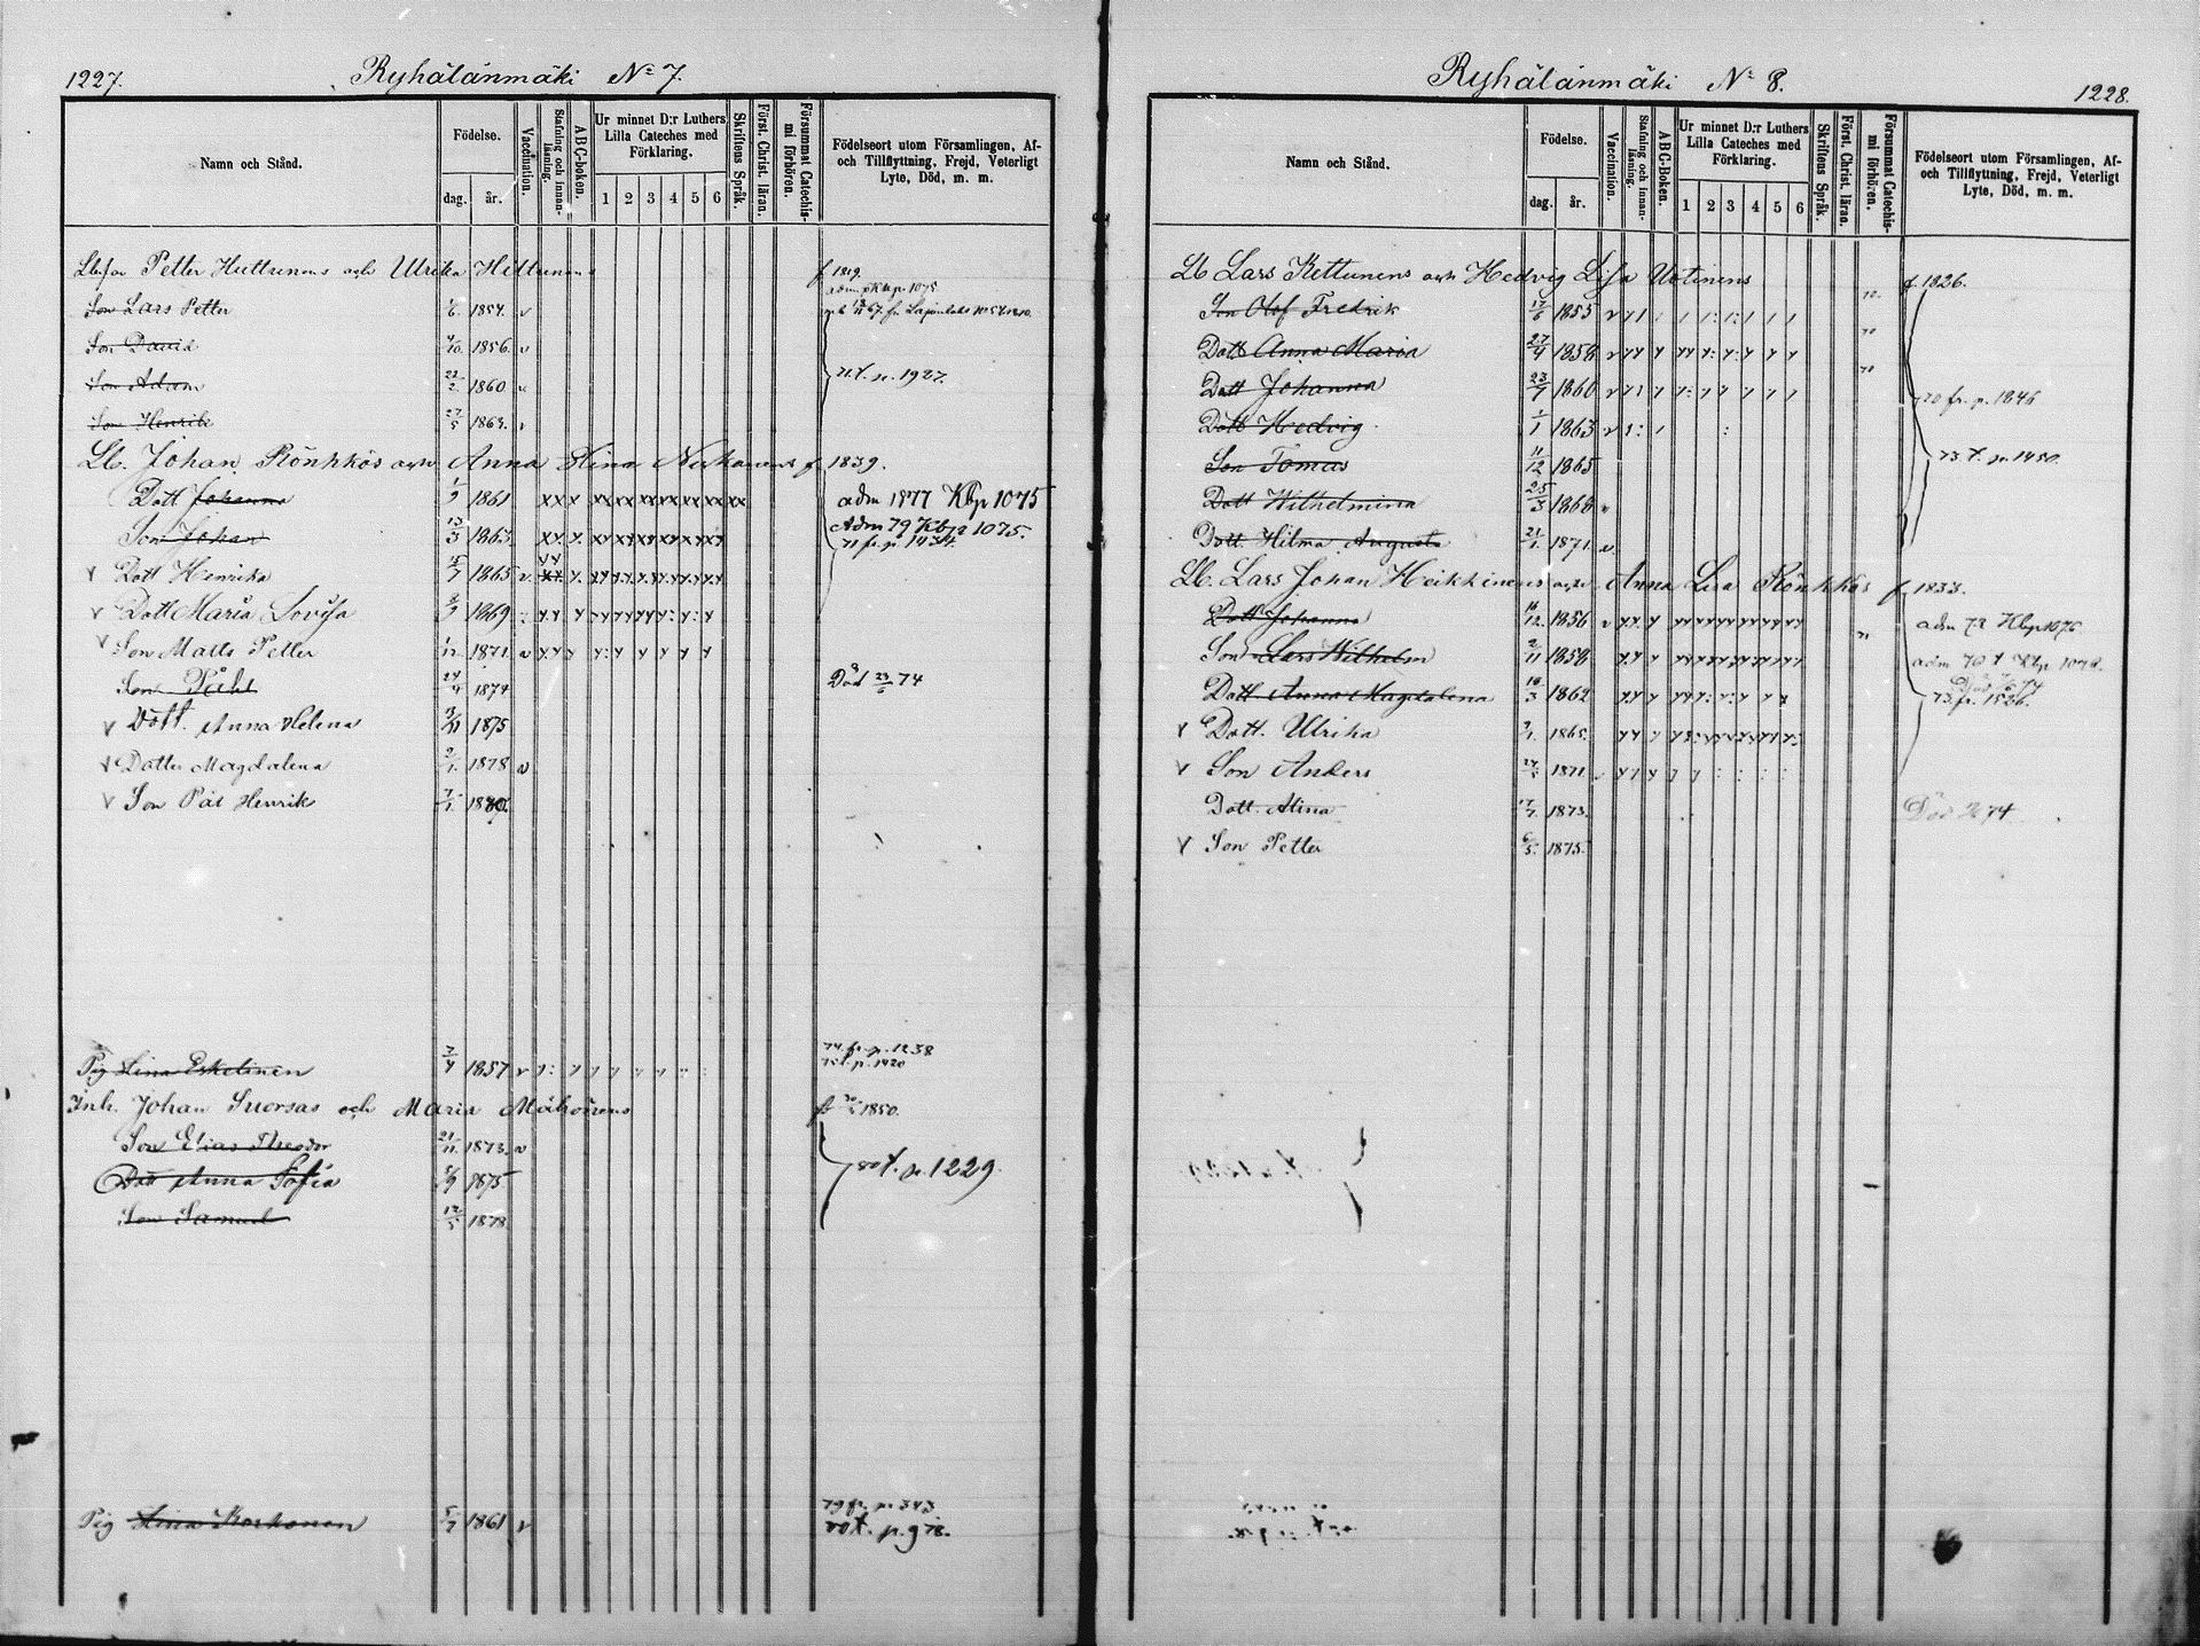 1227.
Ryhälänmäki No 7.
Namn och Stånd.
Födelse.
dag.
år.
Vaccination.
Stafning och innanläsning.
ABC-boken.
Ur minnet D:r Luthers Lilla Cateches med Förklaring.
1 2 3 4 5 6
Skriftens Språk.
Först. Christ. läran.
Försummat Catechismi förhören.
Födelseort utom Församlingen, Af- och Tillflyttning, Frejd, Veterligt Lyte, Död, m. m.
Petter Huttunens och Ulrika Hiltunens f 1819.
adm Kbp 1075
Son Lars Petter 1/6 1854. v
Son David 4/10 1856. v
Son Adam 22/2 1860 v 71 t. p. 1927.
Son Henrik 27/5 1863. v
Lb. Johan Rönkkös och Anna Stina f 1839.
Dott Johanna 1/9 1861 adm 1877 Kbp 1075
Son Johan 13/3 1863. Adm 79 Kbp 1075.
71 fr. p. 1434.
v Dott Henrika 1865 v
v Dott Maria Lovisa 1869
v Son Matts Petter 1/12 1871. v
Son Påhl 24/4 1874 Död 23/6 74
v Dott. Anna Helena 13/11 1875
v Dotter Magdalena 2/1. 1878 v
v Son Pål Henrik 7/1. 1880.
Pig Lina Eskelinen 7/4 1857 v
74. fr. p. 1238
75 t. p. 1420
Inh. Johan Suorsas och Maria f 1850.
Son Elias Theodor 21/11. 1873. v
Dott Anna Sofia 5/9 1875 80 t. p. 1229.
Son Samuel 12/5 1878.
Pig Lina Korhonen 5/7 1861 v
79 fr. p. 343
80 t. p. 918.
Ryhälänmäki No 8.
1228.
Namn och Stånd.
Födelse.
dag.
år.
Vaccination.
Stafning och innanläsning.
ABC-Boken.
Ur minnet D:r Luthers Lilla Cateches med Förklaring.
1 2 3 4 5 6
Skriftens Språk.
Först. Christ. läran.
Försummat Catechismi förhören.
Födelseort utom Församlingen, Af- och Tillflyttning, Frejd, Veterligt Lyte, Död, m. m.
Lb Lars Kettunens och Hedvig Lisa Uotinens f. 1826.
Son Olof Fredrik 17/6 1855 v
Dott Anna Maria 27/4 1858 v 70
Dott Johanna 23/7 1860 v 70
70 fr. p. 1846
Dott Hedvig 1/1 1863 v
Son Tomas 11/12 1865 73. t. p. 1450.
Dott Wilhelmina 25/3 1868 v
Dott. Hilma Augusta 21/1. 1871. v
Lb. Lars Johan Heikkinens och Anna Lisa Rönkkös f. 1833.
Dott Johanna 16/12. 1856 v adm 72 Kbp 1076
Son Lars Wilhelm 2/11 1858
Dott Anna Magdalena 18/3 1862
73. fr. 1526.
v Dott. Ulrika 2/1. 1865.
v Son Anders 24/5 1871.
Dott. Alina 17/7. 1873. Död 74
v Son Petter 6/5. 1875.